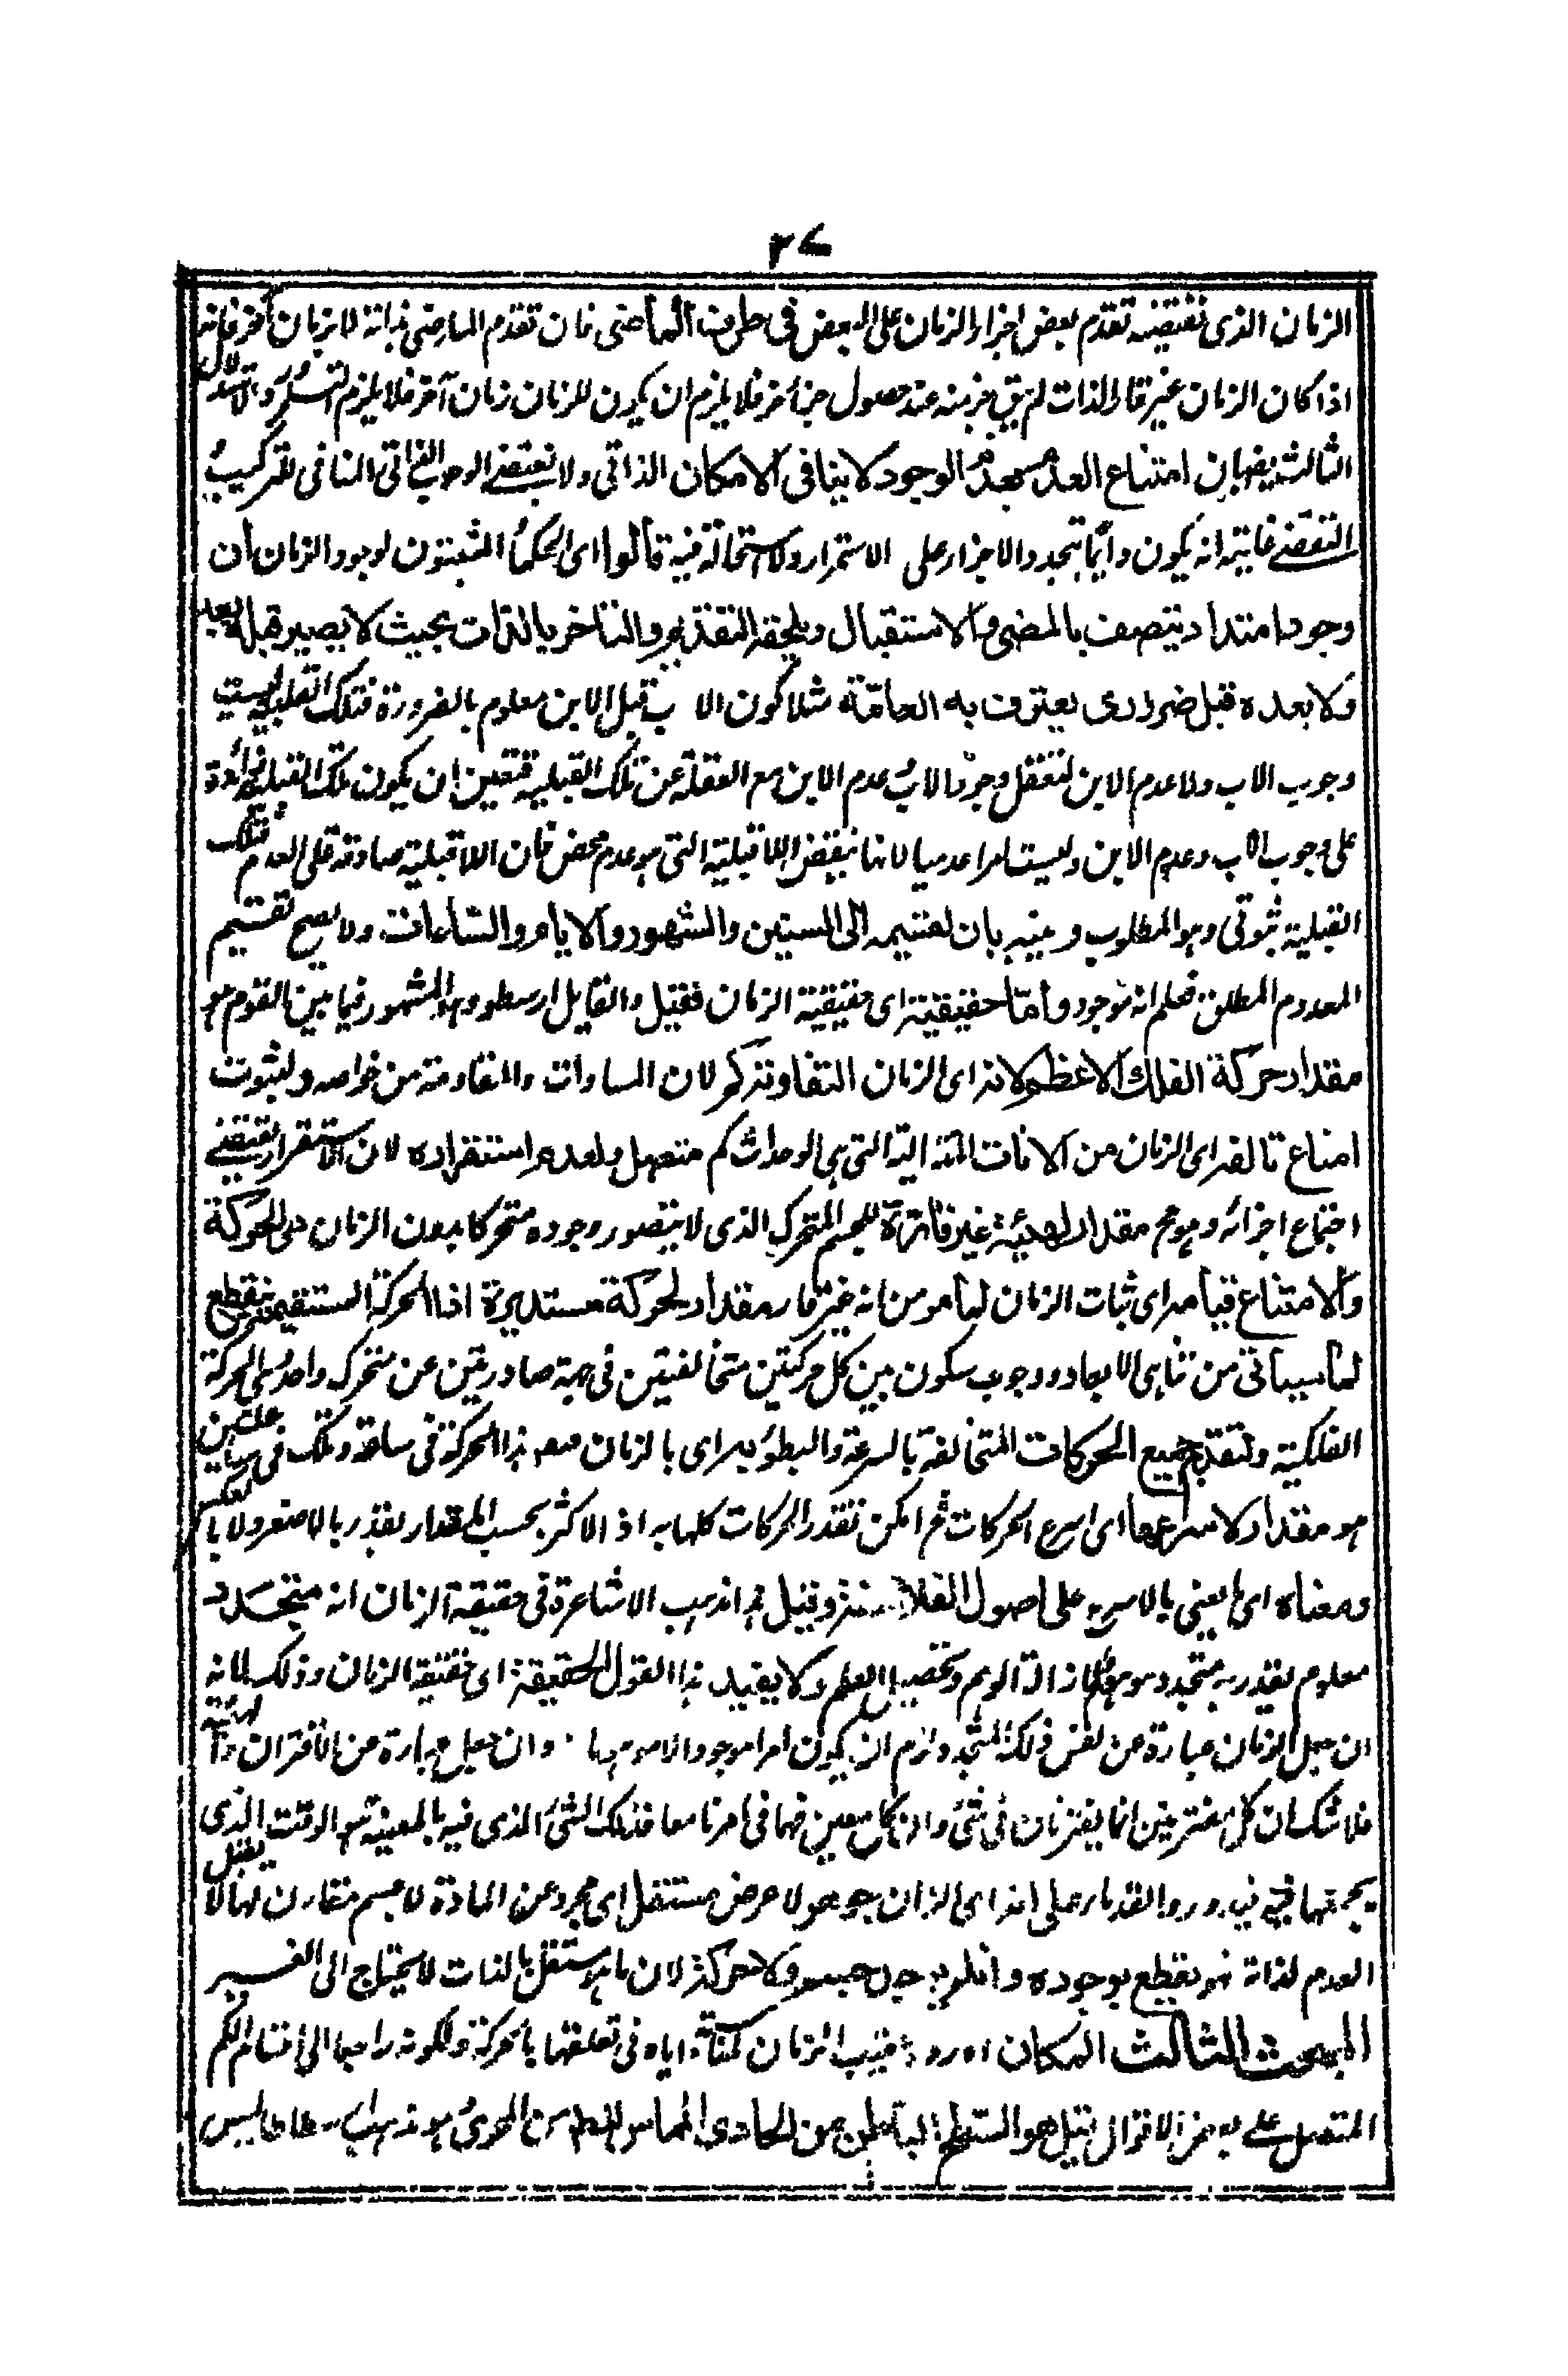 ٣٧
الزمان الذى تقتضيه تقدم بعض اجزاء الزمان على البعض فى طرف الماضى فان تقدم الماضى بذاته لا بزمان آخر فانه
اذا كان الزمان غير قار الذات لم يبق جزء منه عند حصول جزء آخر فلا يلزم ان يكون للزمان زمان آخر فلا يلزم التسلسل والاستدلال
الثالث بان امتناع العدم بعد الوجود لا ينافى الامكان الذاتى ولا يقتضى الوجوب الذاتى المنافى للتركيب
التقضى غايته انه يكون دائما بتجدد الاجزاء على الاستمرار ولا استحالة فيه قالوا اى الحكماء المثبتون لوجود الزمان ان
وجود امتداد يتصف بالمضى والاستقبال ويلحقه التقدم والتاخر بالذات بحيث لا يصير قبله بعد
ولا بعده قبل ضرورى يعترف به العامة مثلا كون الاب قبل الابن معلوم بالضرورة فتلك القبلية ليست
وجوب الاب ولا عدم الابن لتعقل وجود الاب وعدم الابن مع الغفلة عن تلك القبلية فتعين ان يكون تلك القبلية زائدة
على وجوب الاب وعدم الابن وليست امرا عدميا لانها نقيض اللاقبلية التى هو عدم محض فان اللاقبلية صادقة على العدم فتلك
القبلية ثبوتى وهو المطلوب وينبه بان تقسيمه الى السنين والشهور والايام والساعات ولا يصح تقسيم
المعدوم المطلق فعلم انه موجود وأما حقيقته اى حقيقة الزمان فقيل والقايل ارسطو وهو المشهور فيما بين القوم هو
مقدار حركة الفلك الاعظم لانه اى الزمان التفاوته كم لان المساوات والمفاوتة من خواصه ولثبوت
امتناع تالفه اى الزمان من الانات المتتالية التى هى الوحدات كم متصل ولعدم استقراره لان الاستقرار يقتضى
اجتماع اجزائه وهو مح مقدار لهيئة غير قارة للجسم المتحرك الذى لا يتصور وجوده متحركا بدون الزمان هى الحركة
والامتناع قيامه اى ثبات الزمان لما مر من انه غير قار مقدار لحركة مستديرة اذا الحركة المستقيمة تنقطع
لما سيأتى من تناهى الابعاد ووجوب سكون بين كل حركتين متخالفتين فى جهة صادرتين عن متحرك واحد هى الحركة
الفلكية ولتقدر جميع الحركات المتخالفة بالسرعة والبطوء به اى بالزمان هذا الحركة فى ساعة وتلك فى ساعتين
هو مقدار لاسرعها اى اسرع الحركات ثم امكن تقدر الحركات كلها به اذ الاكثر بحسب المقدار يقدر بالاصغر ولا بالعكس
ومعناه اى يعنى بالاسرع على اصول الفلاسفة وقيل هذا مذهب الاشاعرة فى حقيقة الزمان انه متجدد
معلوم يقدر به متجدد موهوم ازالة الوهم وتحصيل العلم ولا يفيد هذا القول الحقيقة اى حقيقة الزمان وذلك لانه
ان جعل الزمان عبارة عن نفس ذلك المتجدد لزم ان يكون امرا موجودا وان جعل عبارة عن الاقتران
فلا شك ان كل مقترنين انما يقترنان فى شىء وان كل معين فهما فى امر ما معا فذلك الشىء الذى فيه المعية هو الوقت الذى
يجمعهما وقيل والقدماء على انه اى الزمان جوهر لا عرض مستقل اى مجرد عن المادة لا جسم مقارن لها لا يقبل
العدم لذاته نقطع بوجوده وان لم يوجد جسم ولا حركة لان ما هو مستقل بالذات لا يحتاج الى الغير
المبحث الثالث المكان اورده عقيب الزمان اياه فى تعلقها بالحركة ولكونه راجعا الى اقسام الكم
المتصل على بعض الاقوال قيل هو السطح الباطن من الحاوى المماس للظاهر من المحوى هو مذهب ارسطاطاليس